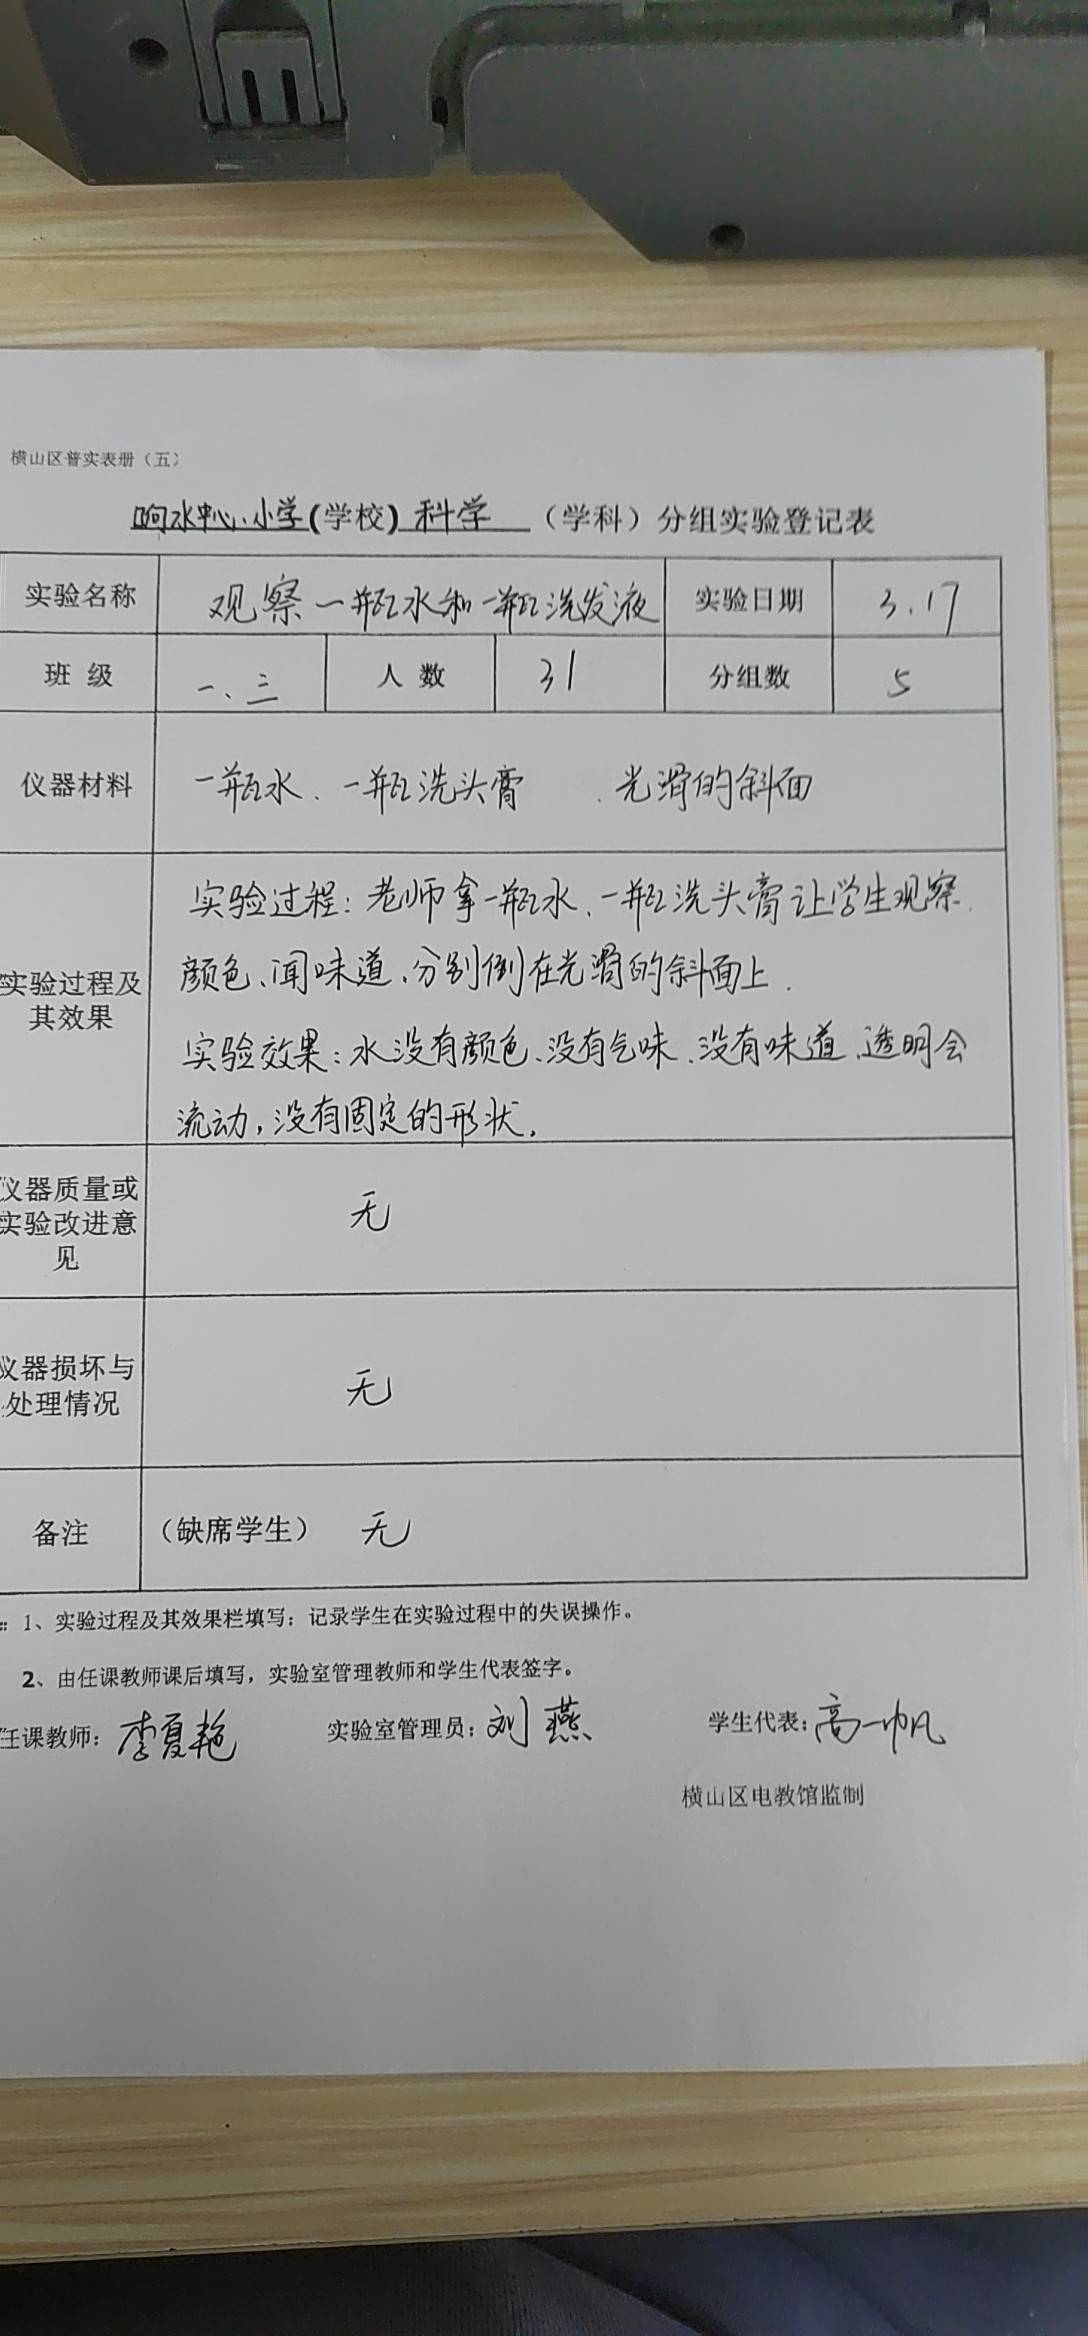 横山区普实表册（五）
响水中心小学(学校) 科学 （学科）分组实验登记表
实验名称 观察一瓶水和一瓶洗发液 实验日期 3.17
班 级 一、三 人 数 31 分组数 5
仪器材料 一瓶水、一瓶洗头膏 、光滑的斜面
实验过程：老师拿一瓶水、一瓶洗头膏让学生观察
颜色、闻味道、分别倒在光滑的斜面上.
实验过程及
其效果
实验效果：水没有颜色、没有气味、没有味道、透明会
流动，没有固定的形状.
仪器质量或
实验改进意
见
无
仪器损坏与
处理情况
无
备注 （缺席学生） 无
：1、实验过程及其效果栏填写：记录学生在实验过程中的失误操作。
2、由任课教师课后填写，实验室管理教师和学生代表签字。
任课教师：李夏艳 实验室管理员：刘燕 学生代表：高一帆
横山区电教馆监制